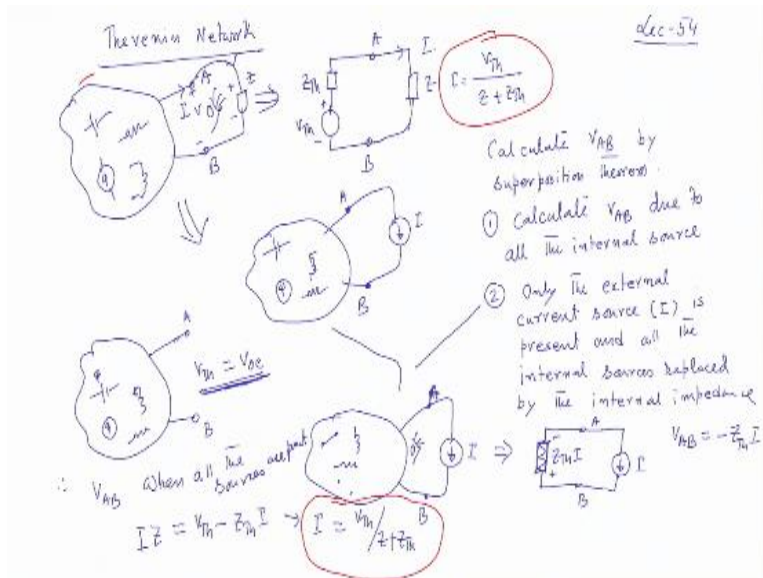 Thevenin Network
Lec-54
A
I
V
Z
B
A
I
Z_Th
V_Th
Z
B
I = V_Th / Z + Z_Th
Calculate V_AB by
superposition theorem.
① Calculate V_AB due to
all the internal source
② Only the external
current source (I) is
present and all the
internal sources replaced
by the internal impedance
A
I
B
A
B
V_Th = V_oc
A
I
B
⇒
A
Z_Th I
I
B
V_AB = -Z_Th I
∴ V_AB when all the
sources are present
IZ = V_Th - Z_Th I → I = V_Th / Z+Z_Th